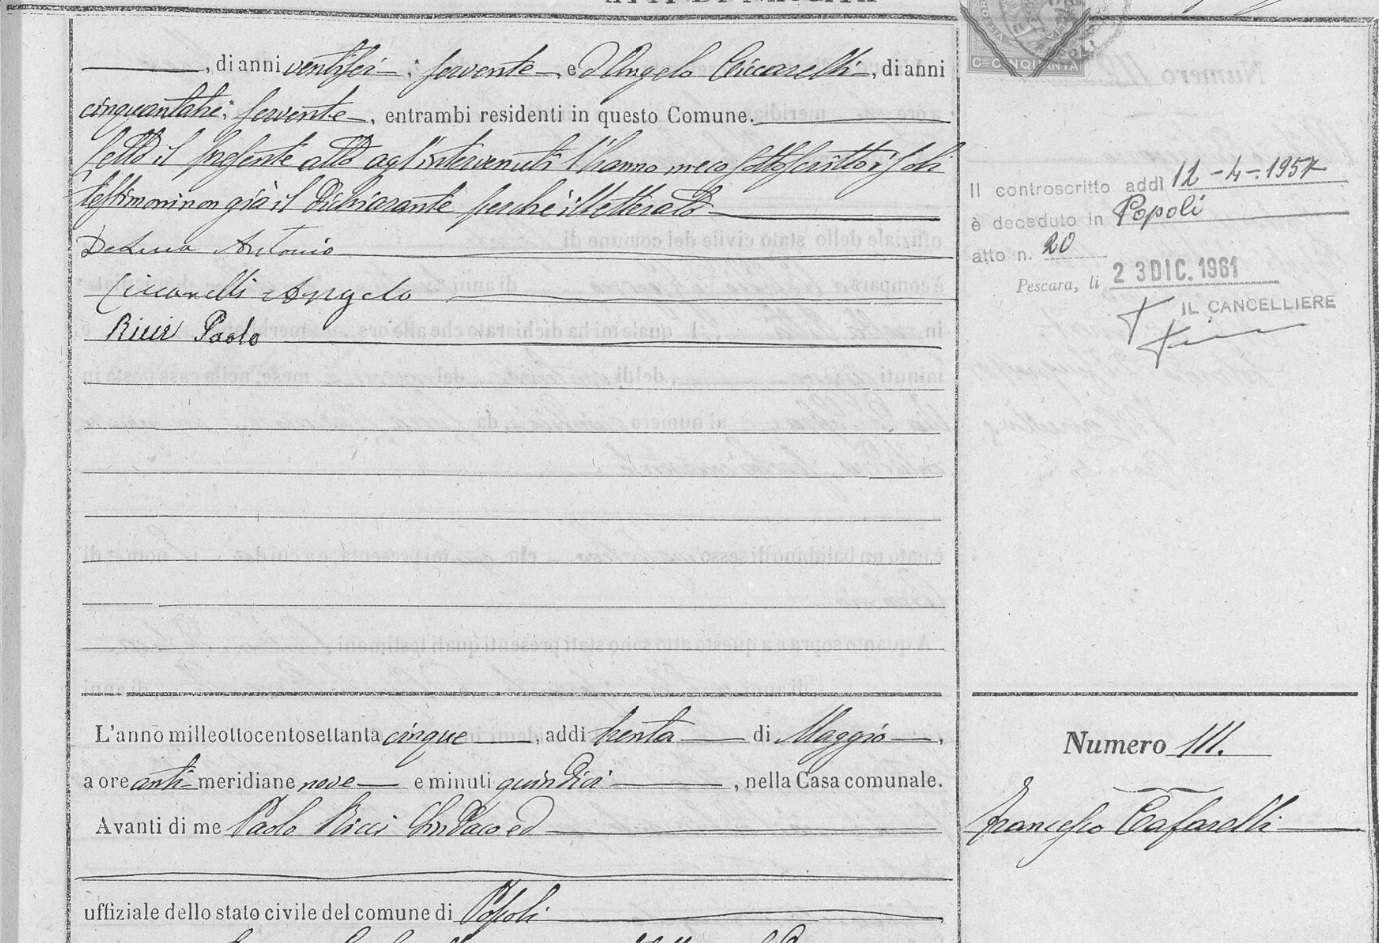 , di anni ventisei ; servente , e d'Angelo Ciccarelli , di anni
cinquantatre ; servente , entrambi residenti in questo Comune.
Letto il presente atto agl'intervenuti l'hanno meco sottoscritto i soli
testimoni non già il dichiarante perché illetterato
DeLuca Antonio
Ciccarelli Angelo
Ricci Paolo
Cmi CINQUANTA
Il controscritto addì 12 - 4 - 1957
è deceduto in Popoli
atto n. 20
Pescara, li 23 DIC. 1961
IL CANCELLIERE
L'anno milleottocentosettanta cinque , addì trenta di Maggio ,
a ore anti meridiane nove e minuti quindici , nella Casa comunale.
Avanti di me Paolo Ricci Sindaco ed
uffiziale dello stato civile del comune di Popoli
Numero 111.
Francesco Cafarelli